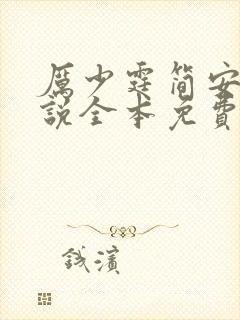 厲少霆简安
說全本免費
錢濱